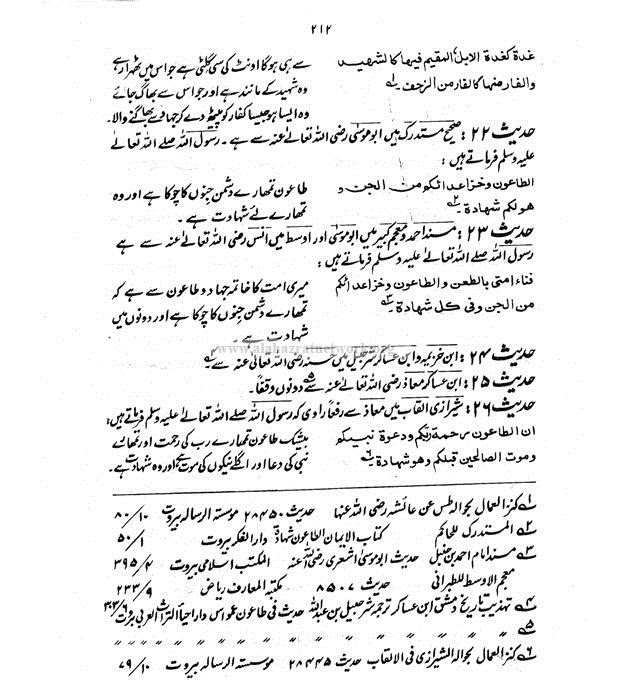 ۲۱۲
غدة کغدة الابل المقیم فیھا کالشھید
والفار منھا کالفار من الزحف ۱؎
سے ہی ہوگا اونٹ کی سی گلٹی ہے جو اس میں ٹھہرا رہے
وہ شہید کے مانند ہے اور جو اس سے بھاگ جائے
وہ ایسا ہو جیسا کفار کو پیٹھ دے کر جہاد سے بھاگنے والا۔
حدیث ۲۲: صحیح مستدرک میں ابو موسٰی رضی اللہ تعالٰی عنہ سے ہے۔ رسول اللہ صلے اللہ تعالٰی
علیہ وسلم فرماتے ہیں:
الطاعون وخز اعدائکم من الجن و
ھو لکم شھادة ۲؎
طاعون تمھارے دشمن جنوں کا چوکا ہے اور وہ
تمھارے لئے شہادت ہے۔
حدیث ۲۳: مسند احمد و معجم کبیر میں ابو موسٰی اور اوسط میں انس رضی اللہ تعالٰی عنہ سے ہے
رسول اللہ صلے اللہ تعالٰی علیہ وسلم فرماتے ہیں:
فناء امتی بالطعن والطاعون وخز اعدائکم
من الجن وفی کل شھادة ۳؎
میری امت کا خاتمہ جہاد و طاعون سے ہے کہ
تمھارے دشمن جنوں کا چوکا ہے اور دونوں میں
شہادت ہے۔
www.alahazratnetwork.org
حدیث ۲۴: ابن خزیمہ و ابن عساکر شرجیل بن حسنہ رضی اللہ تعالٰی عنہ سے ۴؎
حدیث ۲۵: ابن عساکر معاذ رضی اللہ تعالٰی عنہ سے ۵؎ دونوں وقفاً۔
حدیث ۲۶: شیرازی القاب میں معاذ سے رفعاً راوی کہ رسول اللہ صلے اللہ تعالٰی علیہ وسلم فرماتے ہیں:
ان الطاعون رحمة ربکم ودعوة نبیکم
وموت الصالحین قبلکم وھو شھادة ۶؎
بیشک طاعون تمھارے رب کی رحمت اور تمھارے
نبی کی دعا اور اگلے نیکوں کی موت ہے اور وہ شہادت ہے۔
۱؎ کنز العمال بحوالہ طس عن عائشہ رضی اللہ عنہا حدیث ۲۸۴۵۰ مؤسسۃ الرسالہ بیروت ۱۰/ ۸۰
۲؎ المستدرک للحاکم کتاب الایمان الطاعون شہادۃ دار الفکر بیروت ۱/ ۵۰
۳؎ مسند امام احمد بن حنبل حدیث ابو موسٰی اشعری رضی اللہ عنہ المکتب اسلامی بیروت ۴/ ۳۹۵
معجم الاوسط للطبرانی حدیث ۸۵۰۷ مکتبہ المعارف ریاض ۹/ ۲۳۳
۴؎ تہذیب تاریخ دمشق ابن عساکر ترجمہ شرحبیل بن عبداللہ حدیث فی طاعون عمواس دار احیاء التراث العربی بیروت ۶/ ۳۰۳
۵؎ " " " " " " " "
۶؎ کنز العمال بحوالہ الشیرازی فی الالقاب حدیث ۲۸۴۴۵ مؤسسۃ الرسالہ بیروت ۱۰/ ۷۹